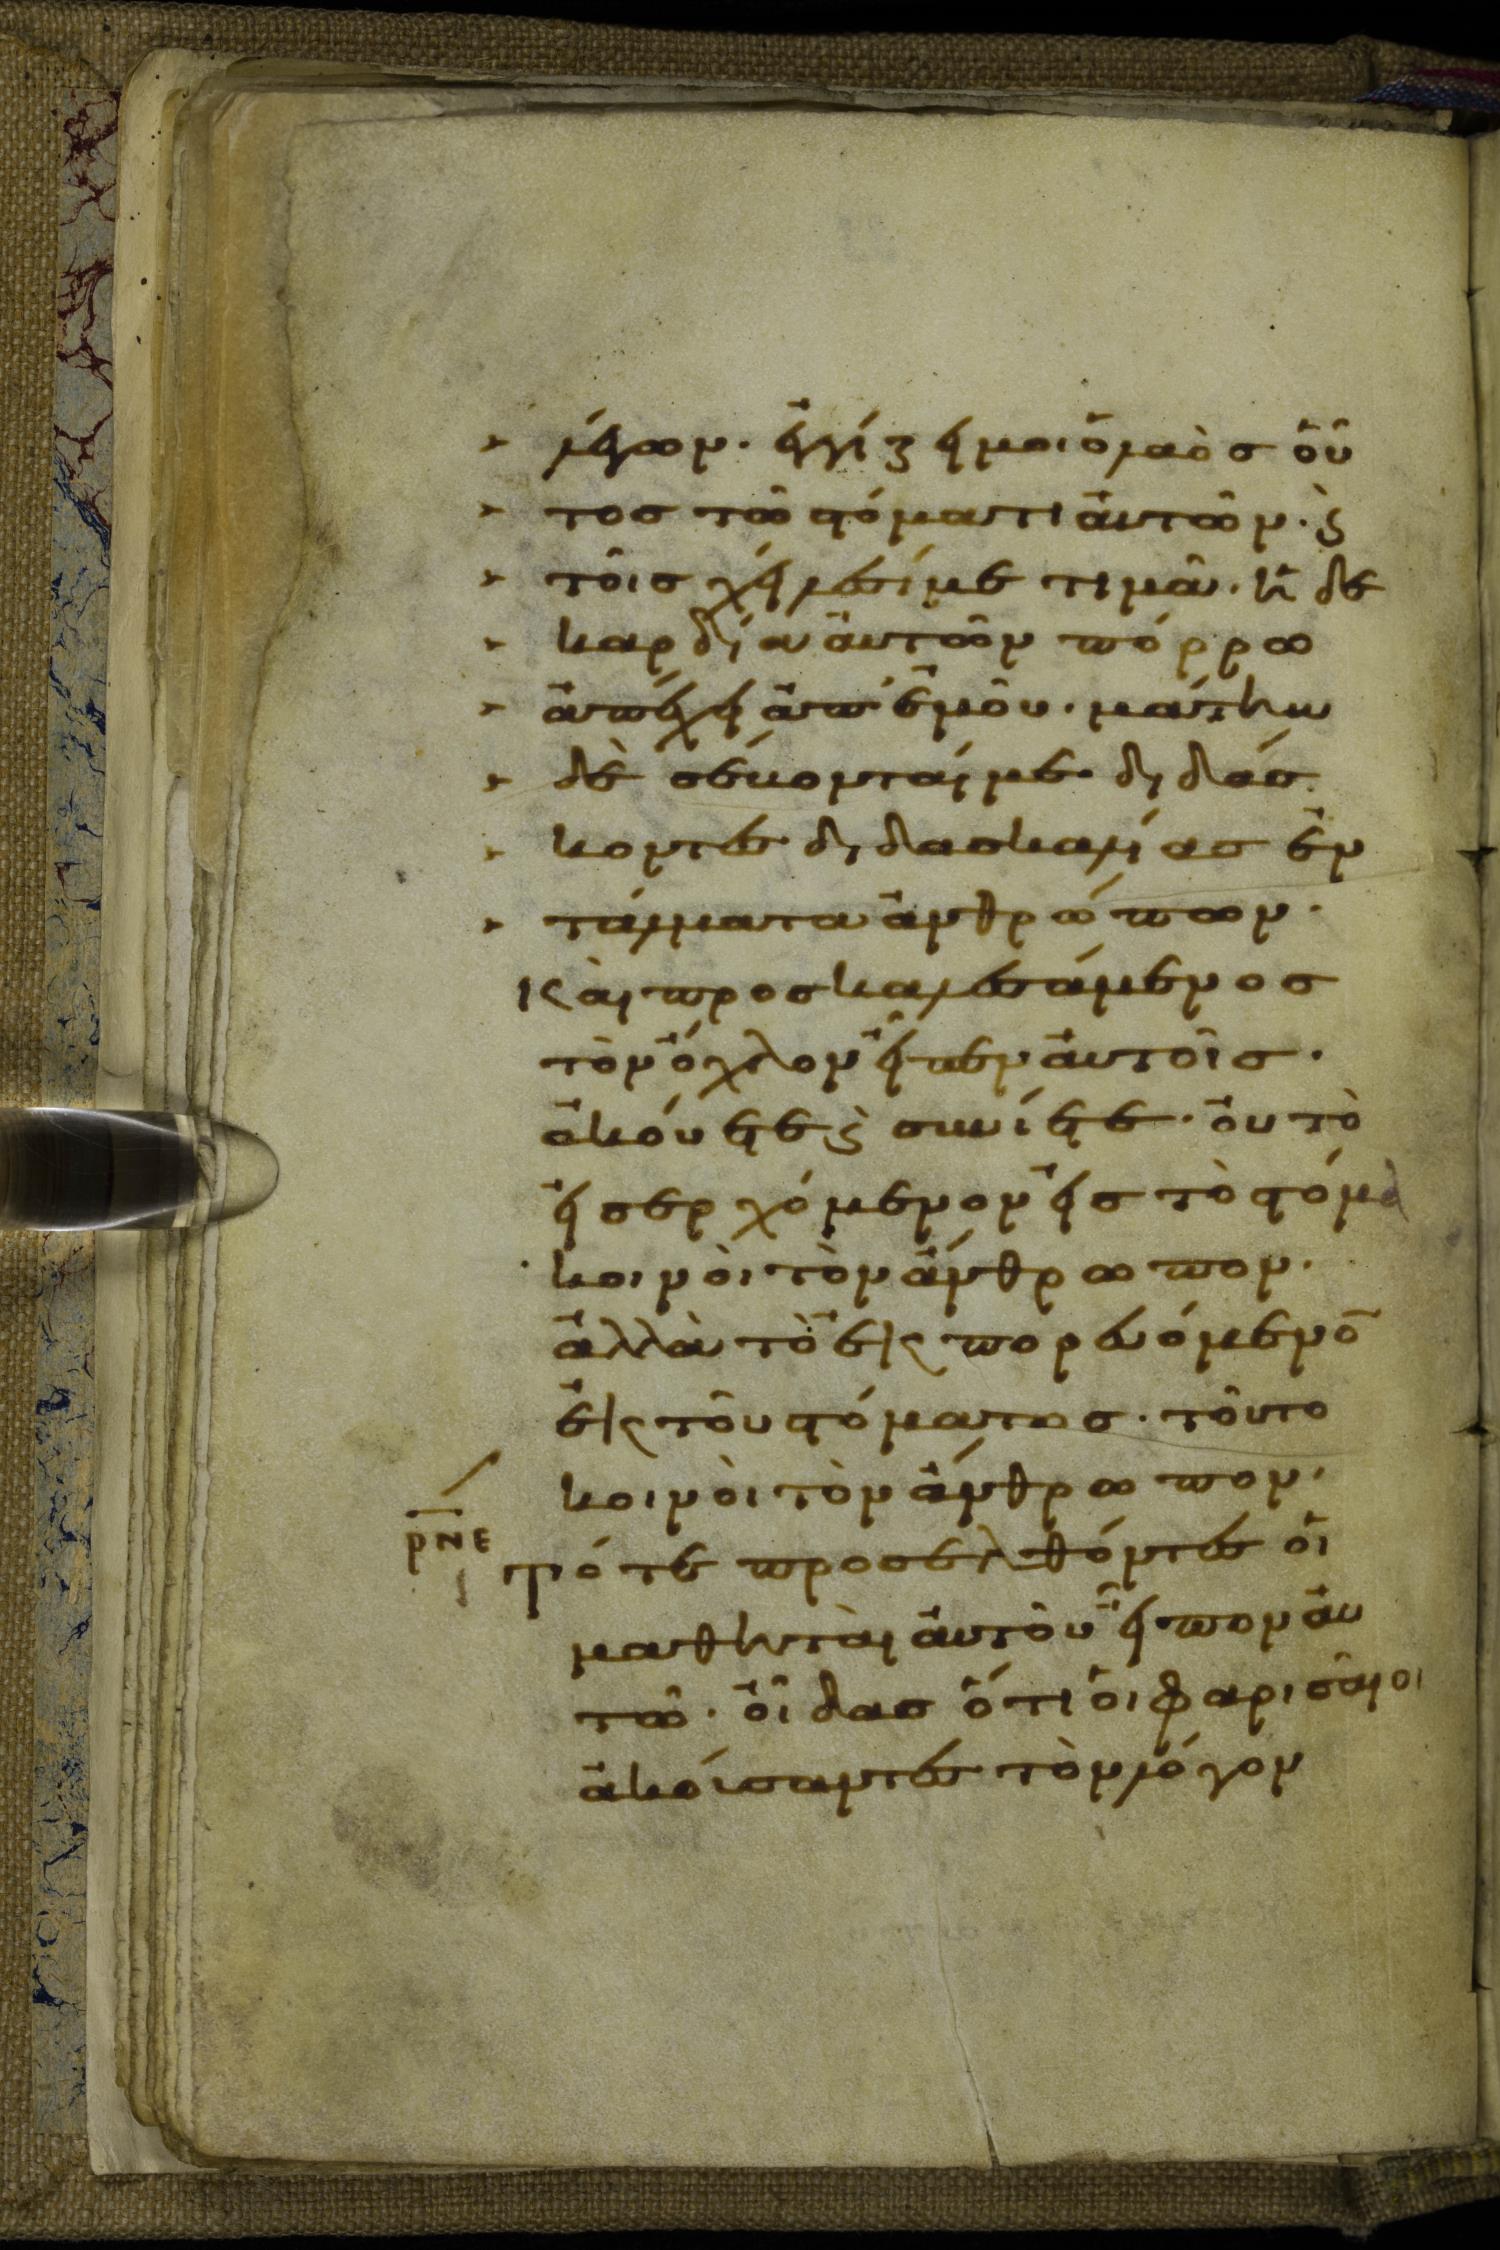 λέγων· ἐγγίζει μοι ὁ λαὸς οὗ
τος τῶ στόματι αὐτῶν· ϗ
τοῖς χείλεσί με τιμᾶ· ἡ δὲ
καρδία αὐτῶν πόρρω
ἀπέχει ἀπ' ἐμοῦ· μάτην
δὲ σέβονταί με· διδάσ
κοντες διδασκαλίας ἐν
τάλματα ἀνθρώπων·
Καὶ προσκαλεσάμενος
τὸν ὄχλον εἶπεν αὐτοῖς·
ἀκούετε ϗ συνίετε· οὐ τὸ
εἰσερχόμενον εἰς τὸ στόμα
κοινοῖ τὸν ἄνθρωπον·
ἀλλὰ τὸ ἐκπορευόμενο̄
ἐκ τοῦ στόματος· τοῦτο
κοινοῖ τὸν ἄνθρωπον·
ρνε
Τότε προσελθόντες οἱ
μαθηταὶ αὐτοῦ εἶπον αὐ
τῶ· οἶδας ὅτι οἱ φαρισαῖοι
ἀκούσαντες τὸν λόγον